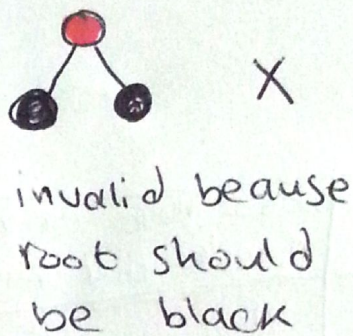 X
invalid beause
root should
be black